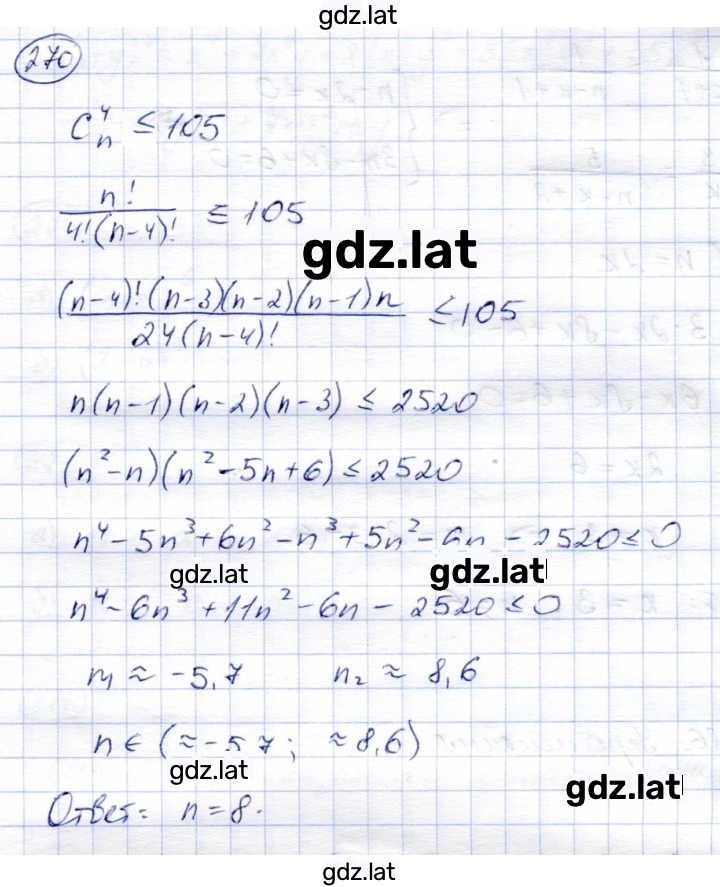 gdz.lat
270
C_n^4 ≤ 105
n! / 4!(n-4)! ≤ 105
gdz.lat
(n-4)!(n-3)(n-2)(n-1)n / 24(n-4)! ≤ 105
n(n-1)(n-2)(n-3) ≤ 2520
(n²-n)(n²-5n+6) ≤ 2520
n⁴-5n³+6n²-n³+5n²-6n-2520≤0
gdz.lat gdz.lat
n⁴-6n³+11n²-6n-2520≤0
n₁ ≈ -5,7 n₂ ≈ 8,6
n ∈ (≈-5,7; ≈8,6)
gdz.lat
gdz.lat
Ответ: n=8.
gdz.lat